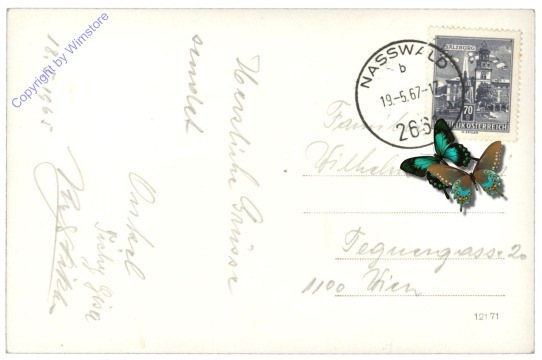 18.5.1965
Herzliche Grüsse
sendet
Onkel
Copyright by Wimstore
NASSWALD
b
19.-5.67-1
266
SALZBURG
70
REPUBLIK ÖSTERREICH
Familie
Wilhelm
Tegnergasse 20
1100 Wien
12171